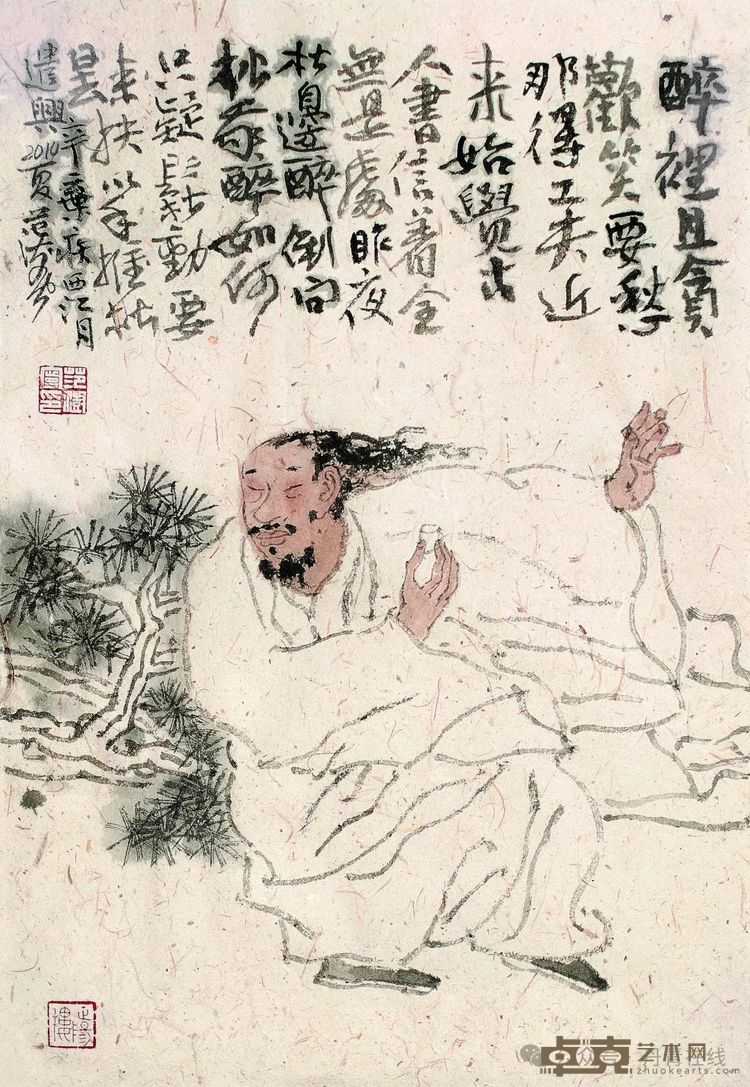 醉裡且貪
歡笑要愁
那得工夫近
来始覺古
人書信着全
無是處昨夜
松邊醉倒问
松我醉如何
只疑松動要
来扶以手推松
曰去 辛棄疾西江月
遣興 2010夏
艺术网
zhuokearts.com